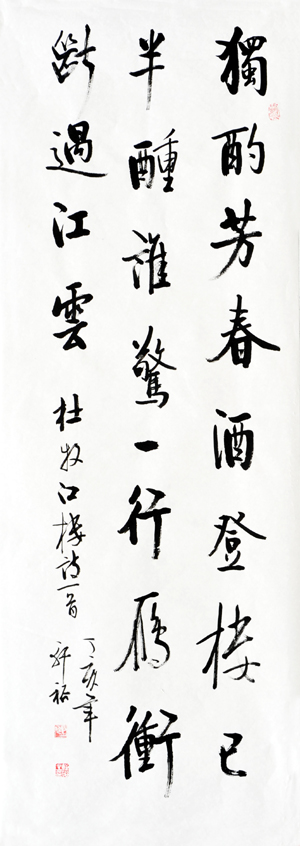 獨酌芳春酒登樓已
半醺誰驚一行雁衝
斷過江雲 杜牧江樓詩一首
丁亥年